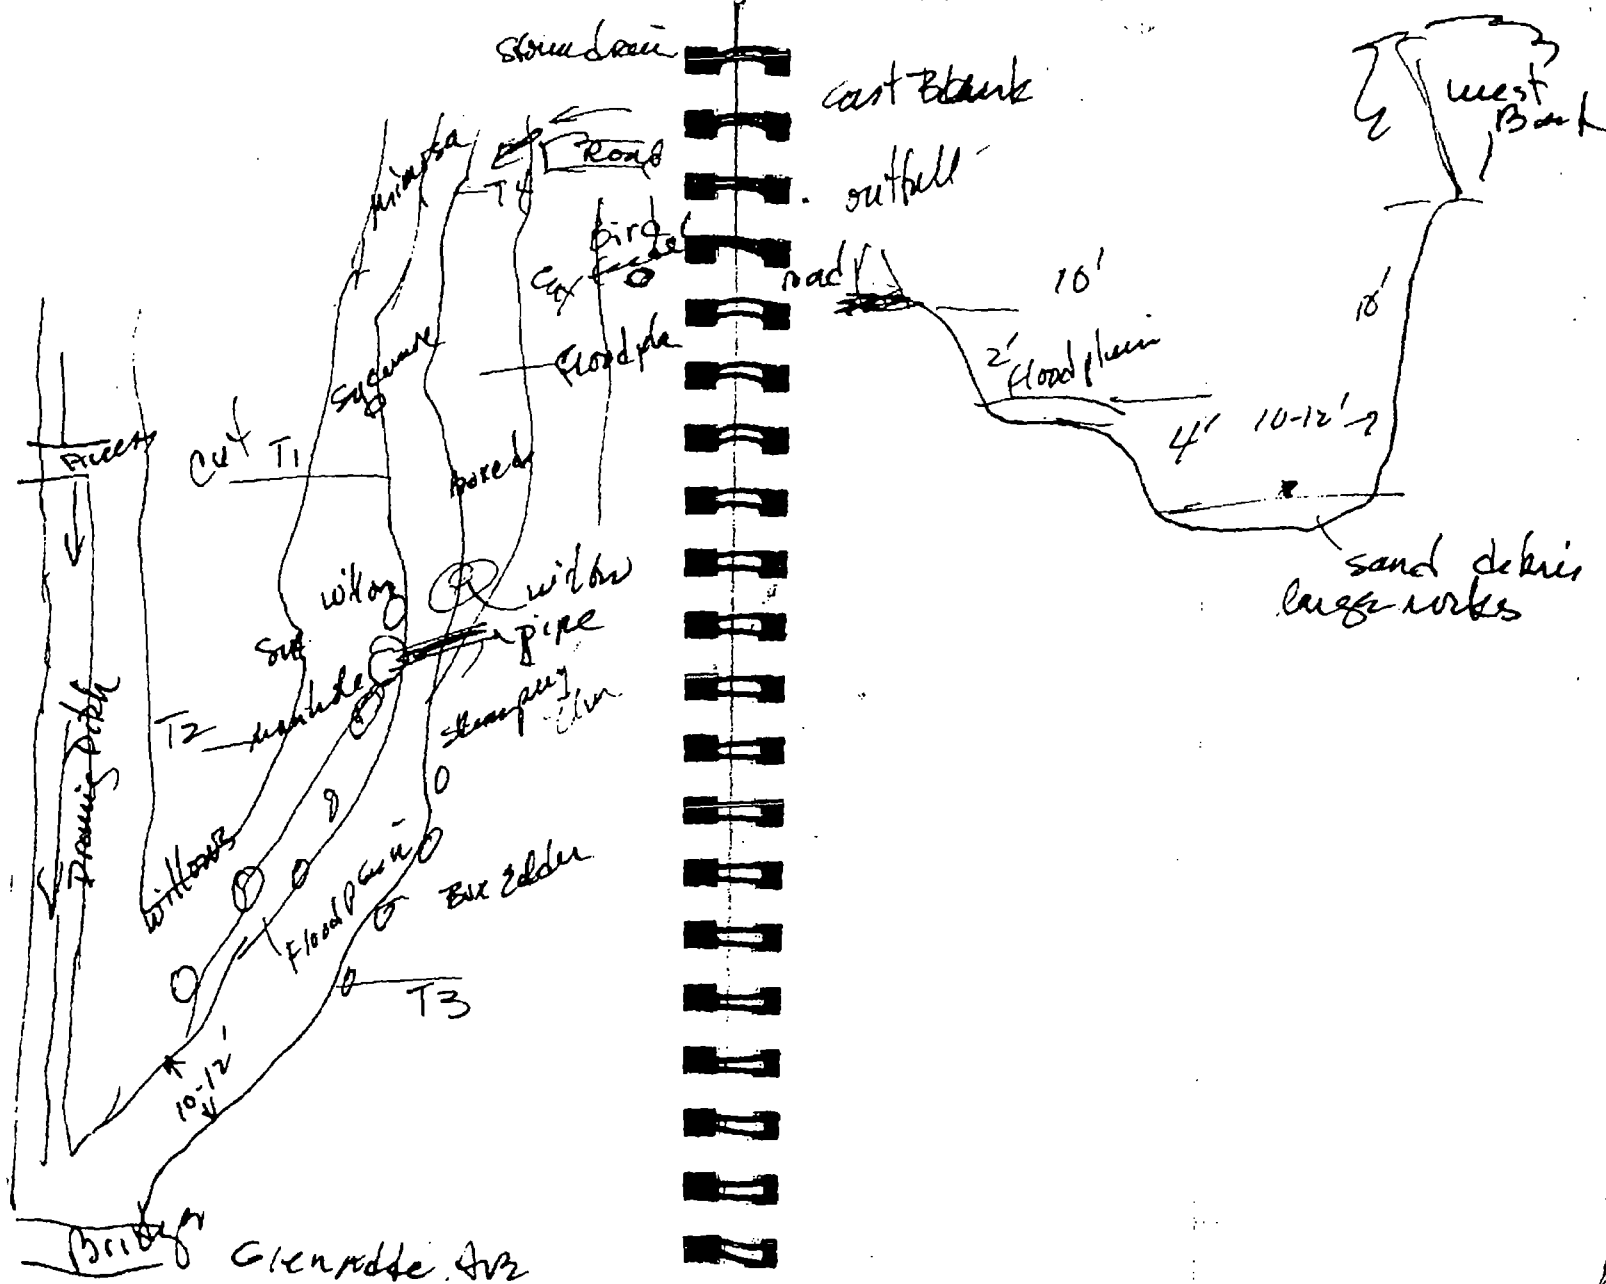 storm drain
mimosa
Road
T4
Bird
feeder
Sycamore
Floodpla
Access
Cut T1
boxed
willow
willow
pipe
manhole
T2
stump
elm
Draining Ditch
willows
Floodplain
Box Elder
T3
10-12'
Bridge
Glenridge Ave
East Bank
outfall
road
10'
2'
Floodplain
4'
10-12'
10'
west
Bank
sand debris
large rocks